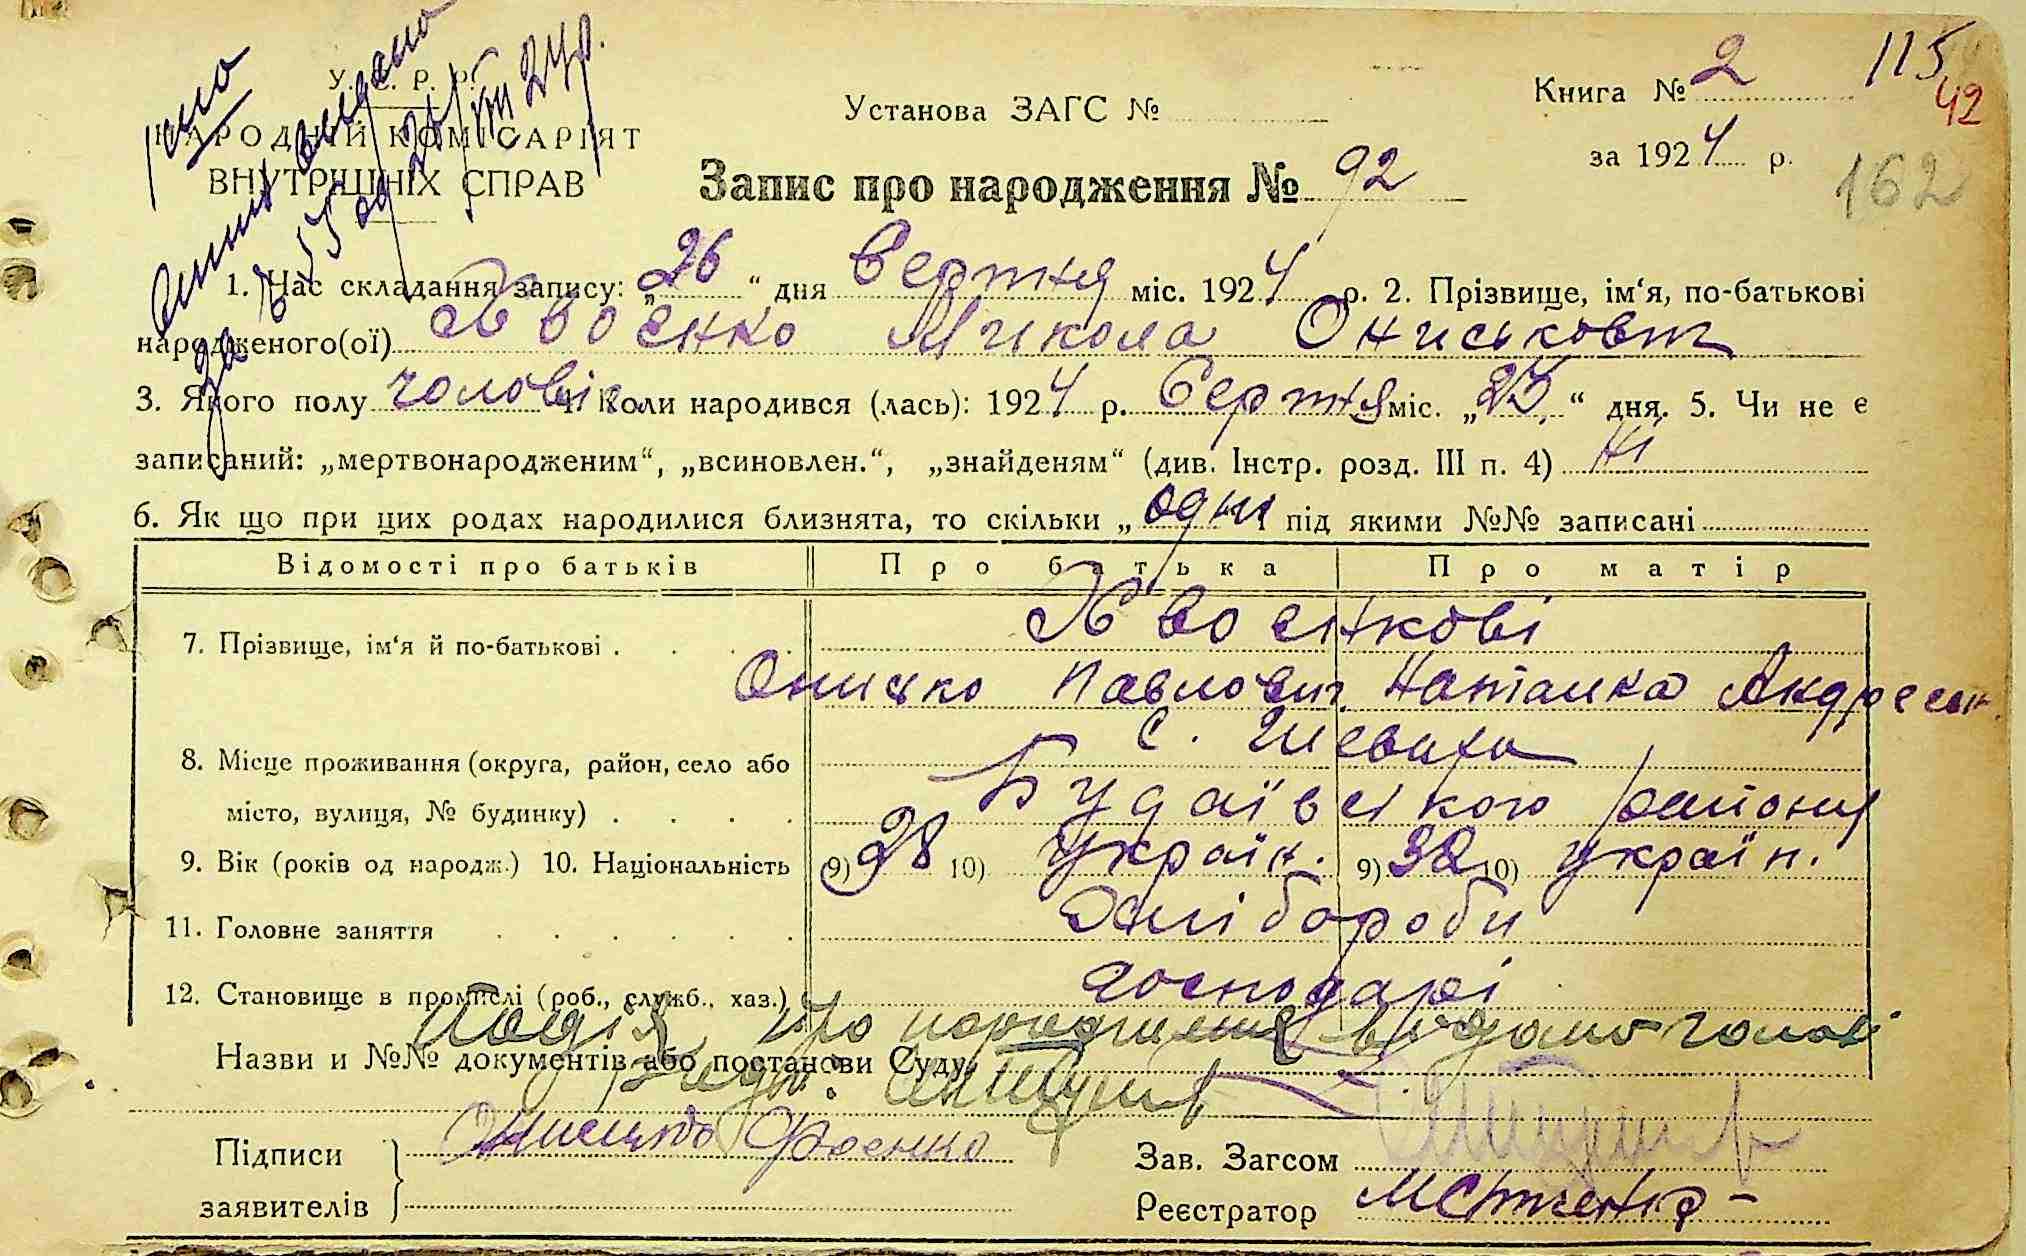 У. С. Р. Р.
НАРОДНІЙ КОМІСАРІЯТ
ВНУТРІШНІХ СПРАВ
Установа ЗАГС №
Книга № 2
115
42
за 1924 р.
162
Запис про народження № 92
1. Час складання запису: „26“ дня Серпня міс. 1924 р. 2. Прізвище, ім‘я, по-батькові
народженого(ої) Хвоєнко Микола Ониськович
3. Якого полу чоловіч. 4. Коли народився (лась): 1924 р. Серпня міс. „25“ дня. 5. Чи не є
записаний: „мертвонародженим“, „всиновлен.“, „знайденям“ (див. Інстр. розд. III п. 4) Ні
6. Як що при цих родах народилися близнята, то скільки „одни під якими №№ записані
Відомості про батьків Про батька Про матір
7. Прізвище, ім‘я й по-батькові . . . . Хвоєнкові
Онисько Павлович Наталка Андреєвн.
8. Місце проживання (округа, район, село або с.
місто, вулиця, № будинку) . . . . Будаївського району
9. Вік (років од народж.) 10. Національність 9) 28 10) Україн. 9) 32 10) україн.
11. Головне заняття . . . . . . Хлібороби
12. Становище в промислі (роб., служб., хаз.) господарі
Подія про народження відома голові
Назви и №№ документів або постанови Суду
Підписи
заявителів
Зав. Загсом
Реєстратор